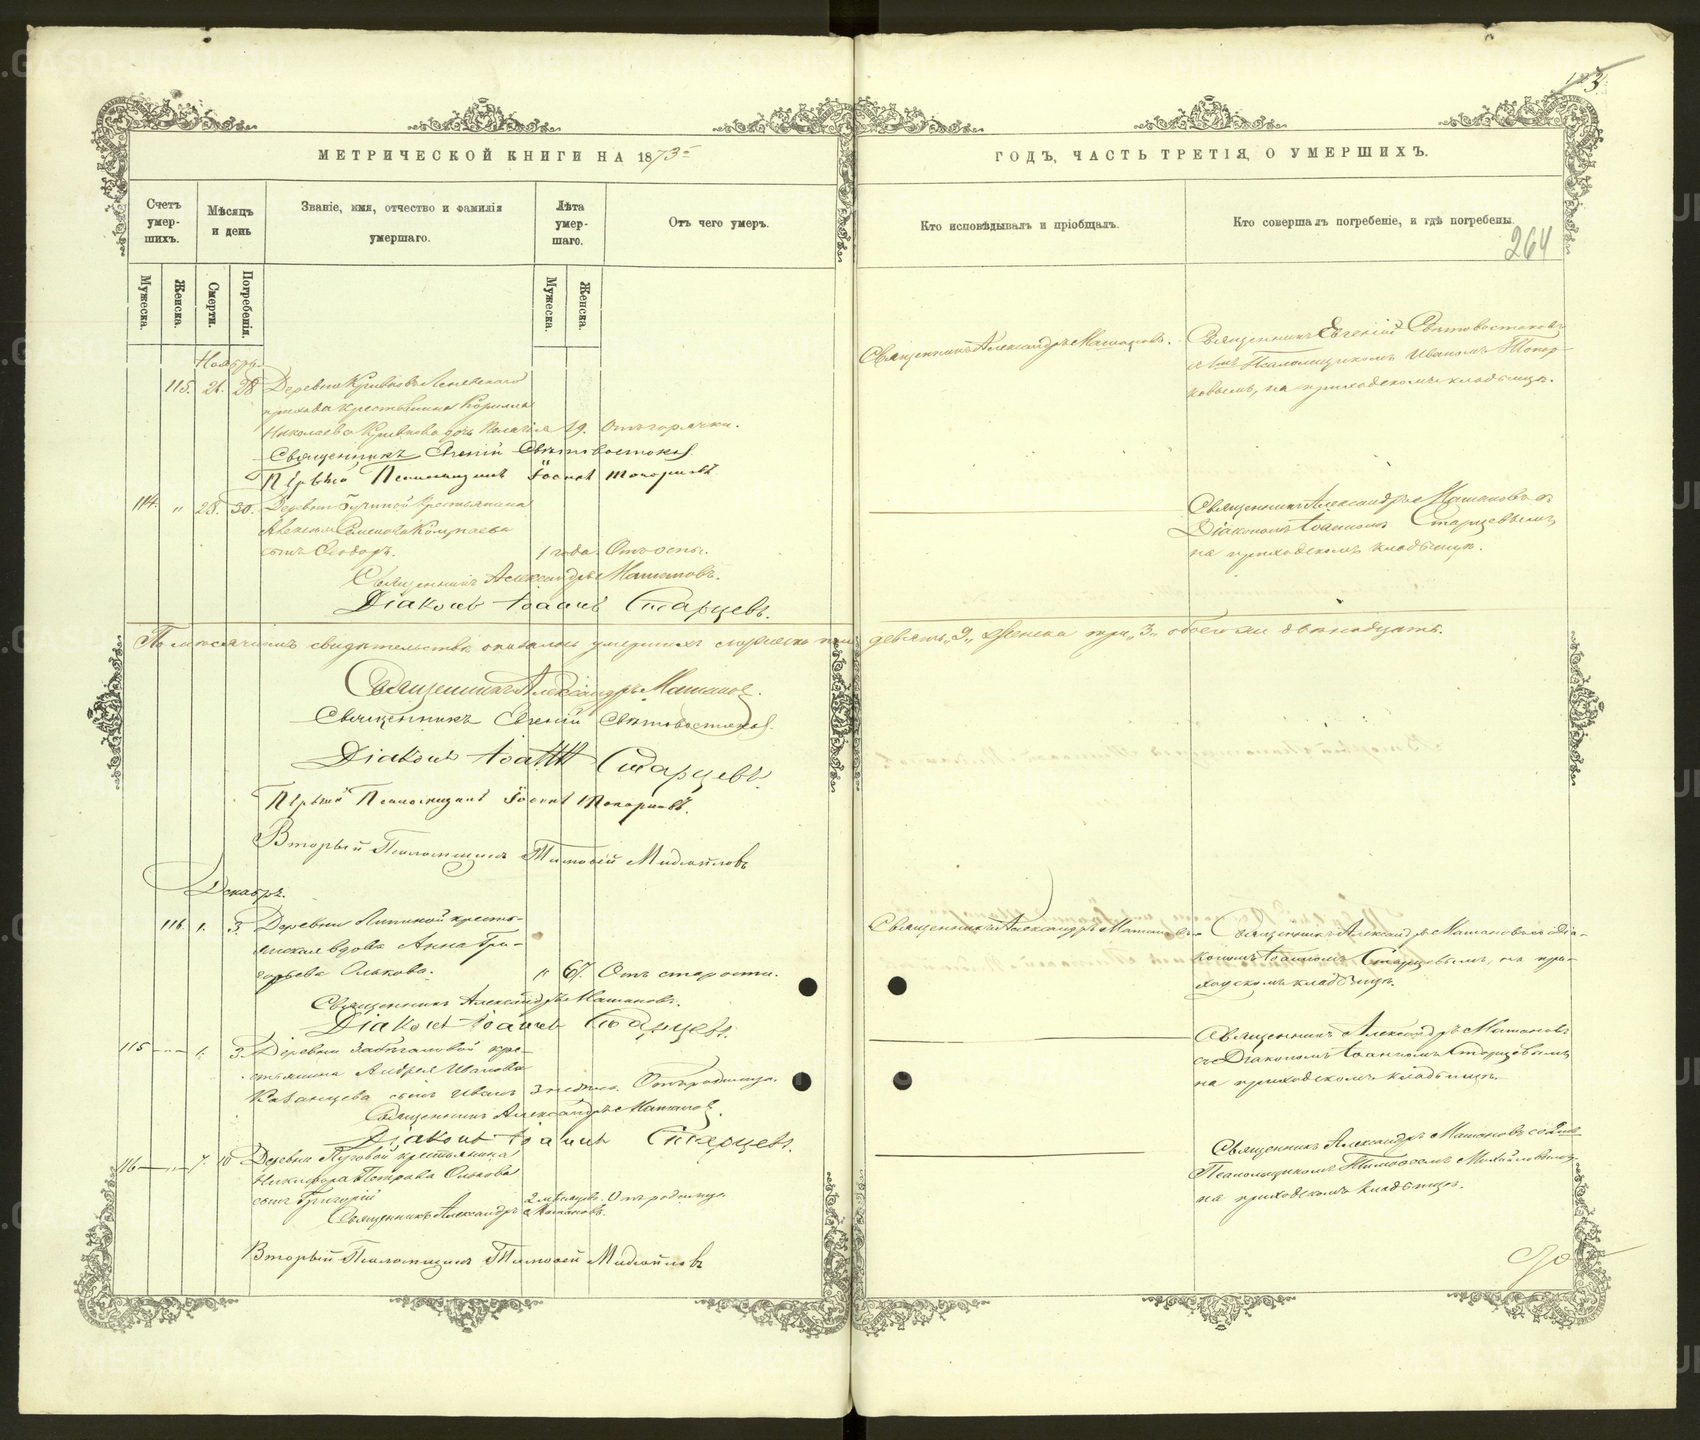 123
МЕТРИЧЕСКОЙ КНИГИ НА 1873
ГОДЪ, ЧАСТЬ ТРЕТІЯ, О УМЕРШИХЪ.
Счетъ умер-
шихъ.
Мѣсяцъ
и день
Званіе, имя, отчество и фамилія
умершаго.
Лѣта
умер-
шаго.
Отъ чего умеръ.
Кто исповѣдывалъ и пріобщалъ.
Кто совершалъ погребеніе, и гдѣ погребены.
264
Мужеска.
Женска.
Смерти.
Погребенія.
Мужеска.
Женска.
Ноябрь
115. 26. 28
прихода крестьянина Кирилла
Николаева дочь Пелагія 19. Отъ горячки.
Священникъ Евгеній Свѣтовостоковъ
Первый Псаломщикъ Іоаннъ Топорковъ
Священникъ Александръ Машановъ.
Священникъ Евгеній Свѣтовостоковъ
съ Псаломщикомъ Иваномъ Топор-
ковымъ, на приходскомъ кладбищѣ.
114. " 28. 30. Деревни крестьянина
сынъ Ѳеодоръ. 1 года Отъ оспы.
Священникъ Александръ Машановъ.
Діаконъ Іоаннъ Старцевъ.
Священникъ Александръ Машановъ съ
Діакономъ Іоанномъ Старцевымъ
на приходскомъ кладбищѣ.
свидѣтельствѣ оказалось умершихъ мужеска пола девять „9„ женска три „3„ обоего двенадцать.
Священникъ Александръ Машановъ.
Священникъ Евгеній Свѣтовостоковъ.
Діаконъ Іоаннъ Старцевъ.
Первый Псаломщикъ Іоаннъ Топорковъ.
Вторый Псаломщикъ Тимоѳей Михайловъ
Декабрь.
116. 1. 3. Деревни Липиной кресть-
янская вдова Анна Гри-
горьева Олькова. " 67. Отъ старости.
Священникъ Александръ Машановъ.
Діаконъ Іоаннъ Старцевъ.
Священникъ Александръ Машановъ
Священникъ Александръ Машановъ съ Діа-
кономъ Іоанномъ Старцевымъ, на при-
ходскомъ кладбищѣ.
115 — " — 1. 3. Деревни кре-
стьянина Андрея Иванова
Казанцева сынъ Иванъ 3 недѣль. Отъ родимца.
Священникъ Александръ Машановъ.
Діаконъ Іоаннъ Старцевъ.
Священникъ Александръ Машановъ
съ Діакономъ Іоанномъ Старцевымъ
на приходскомъ кладбищѣ.
116 — " — 7. 10 Деревни крестьянина
Никифора Петрова Олькова
сынъ Григорій 2 мѣсяцевъ. Отъ родимца
Священникъ Александръ Машановъ.
Вторый Псаломщикъ Тимоѳей Михайловъ
Священникъ Александръ Машановъ со 2мъ
Псаломщикомъ Тимоѳеемъ Михайловымъ
на приходскомъ кладбищѣ.